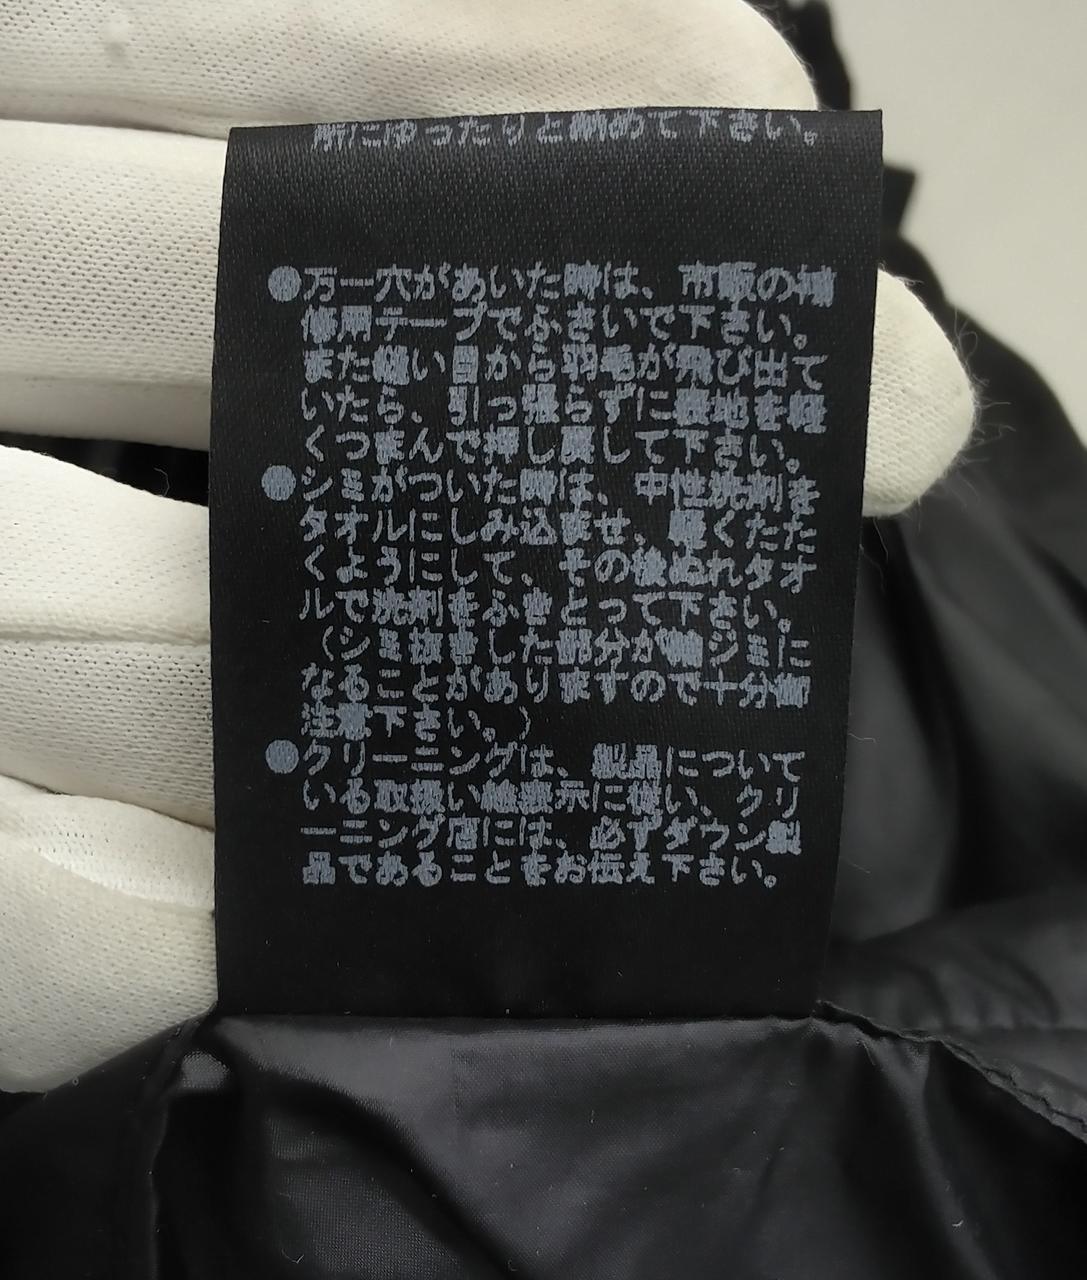 所にゆったりと納めて下さい。
●万一穴があいた時は、市販の補
修用テープでふさいで下さい。
また縫い目から羽毛が飛び出て
いたら、引っ張らずに表地を軽
くつまんで押し戻して下さい。
●シミがついた時は、中性洗剤を
タオルにしみ込ませ、軽くたた
くようにして、その後ぬれタオ
ルで洗剤をふきとって下さい。
(シミ抜きした部分が輪ジミに
なることがありますので十分御
注意下さい。)
●クリーニングは、製品について
いる取扱い絵表示に従い、クリ
ーニング店には、必ずダウン製
品であることをお伝え下さい。